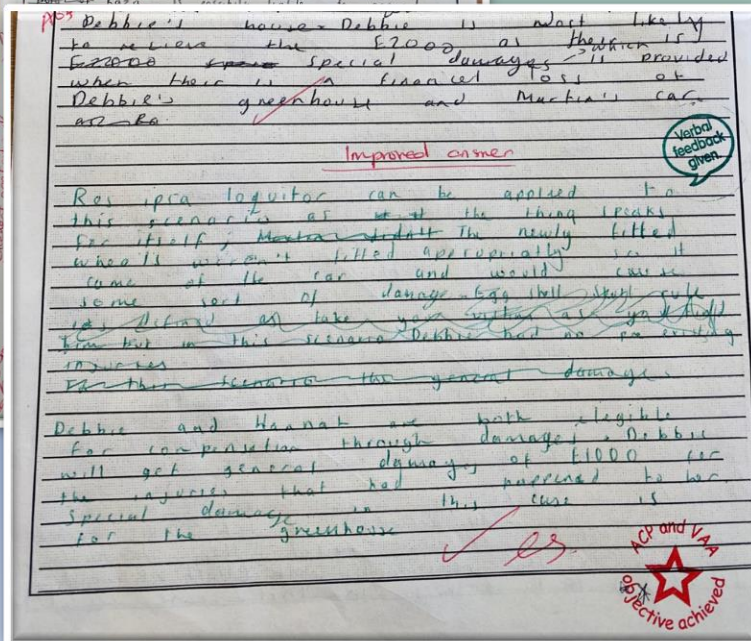 Debbie's house. Debbie is most likely
to recieve the £2000 as their is
£22000 special damages which is provided
when their is a financel loss of
Debbie's greenhouse and Martin's car.
Improved answer
Verbal
feedback
given
Res ipsa loquitor can be applied to
this scenario as the thing speaks
for itself; The newly fitted
wheels weren't fitted appropriatly so it
came of the car and would cause
some sort of damage. Egg shell skull rule
is defined as take your victim as you find
him but in this scenario Debbie had no pre existing
injuries.
In this scenario the general damage.
Debbie and Hannah are both elegible
for compensation through damages. Debbie
will get general damages of £1000 for
the injuries that had happened to her.
Special damage in this case is
for the greenhouse
ACP and VAA
objective achieved